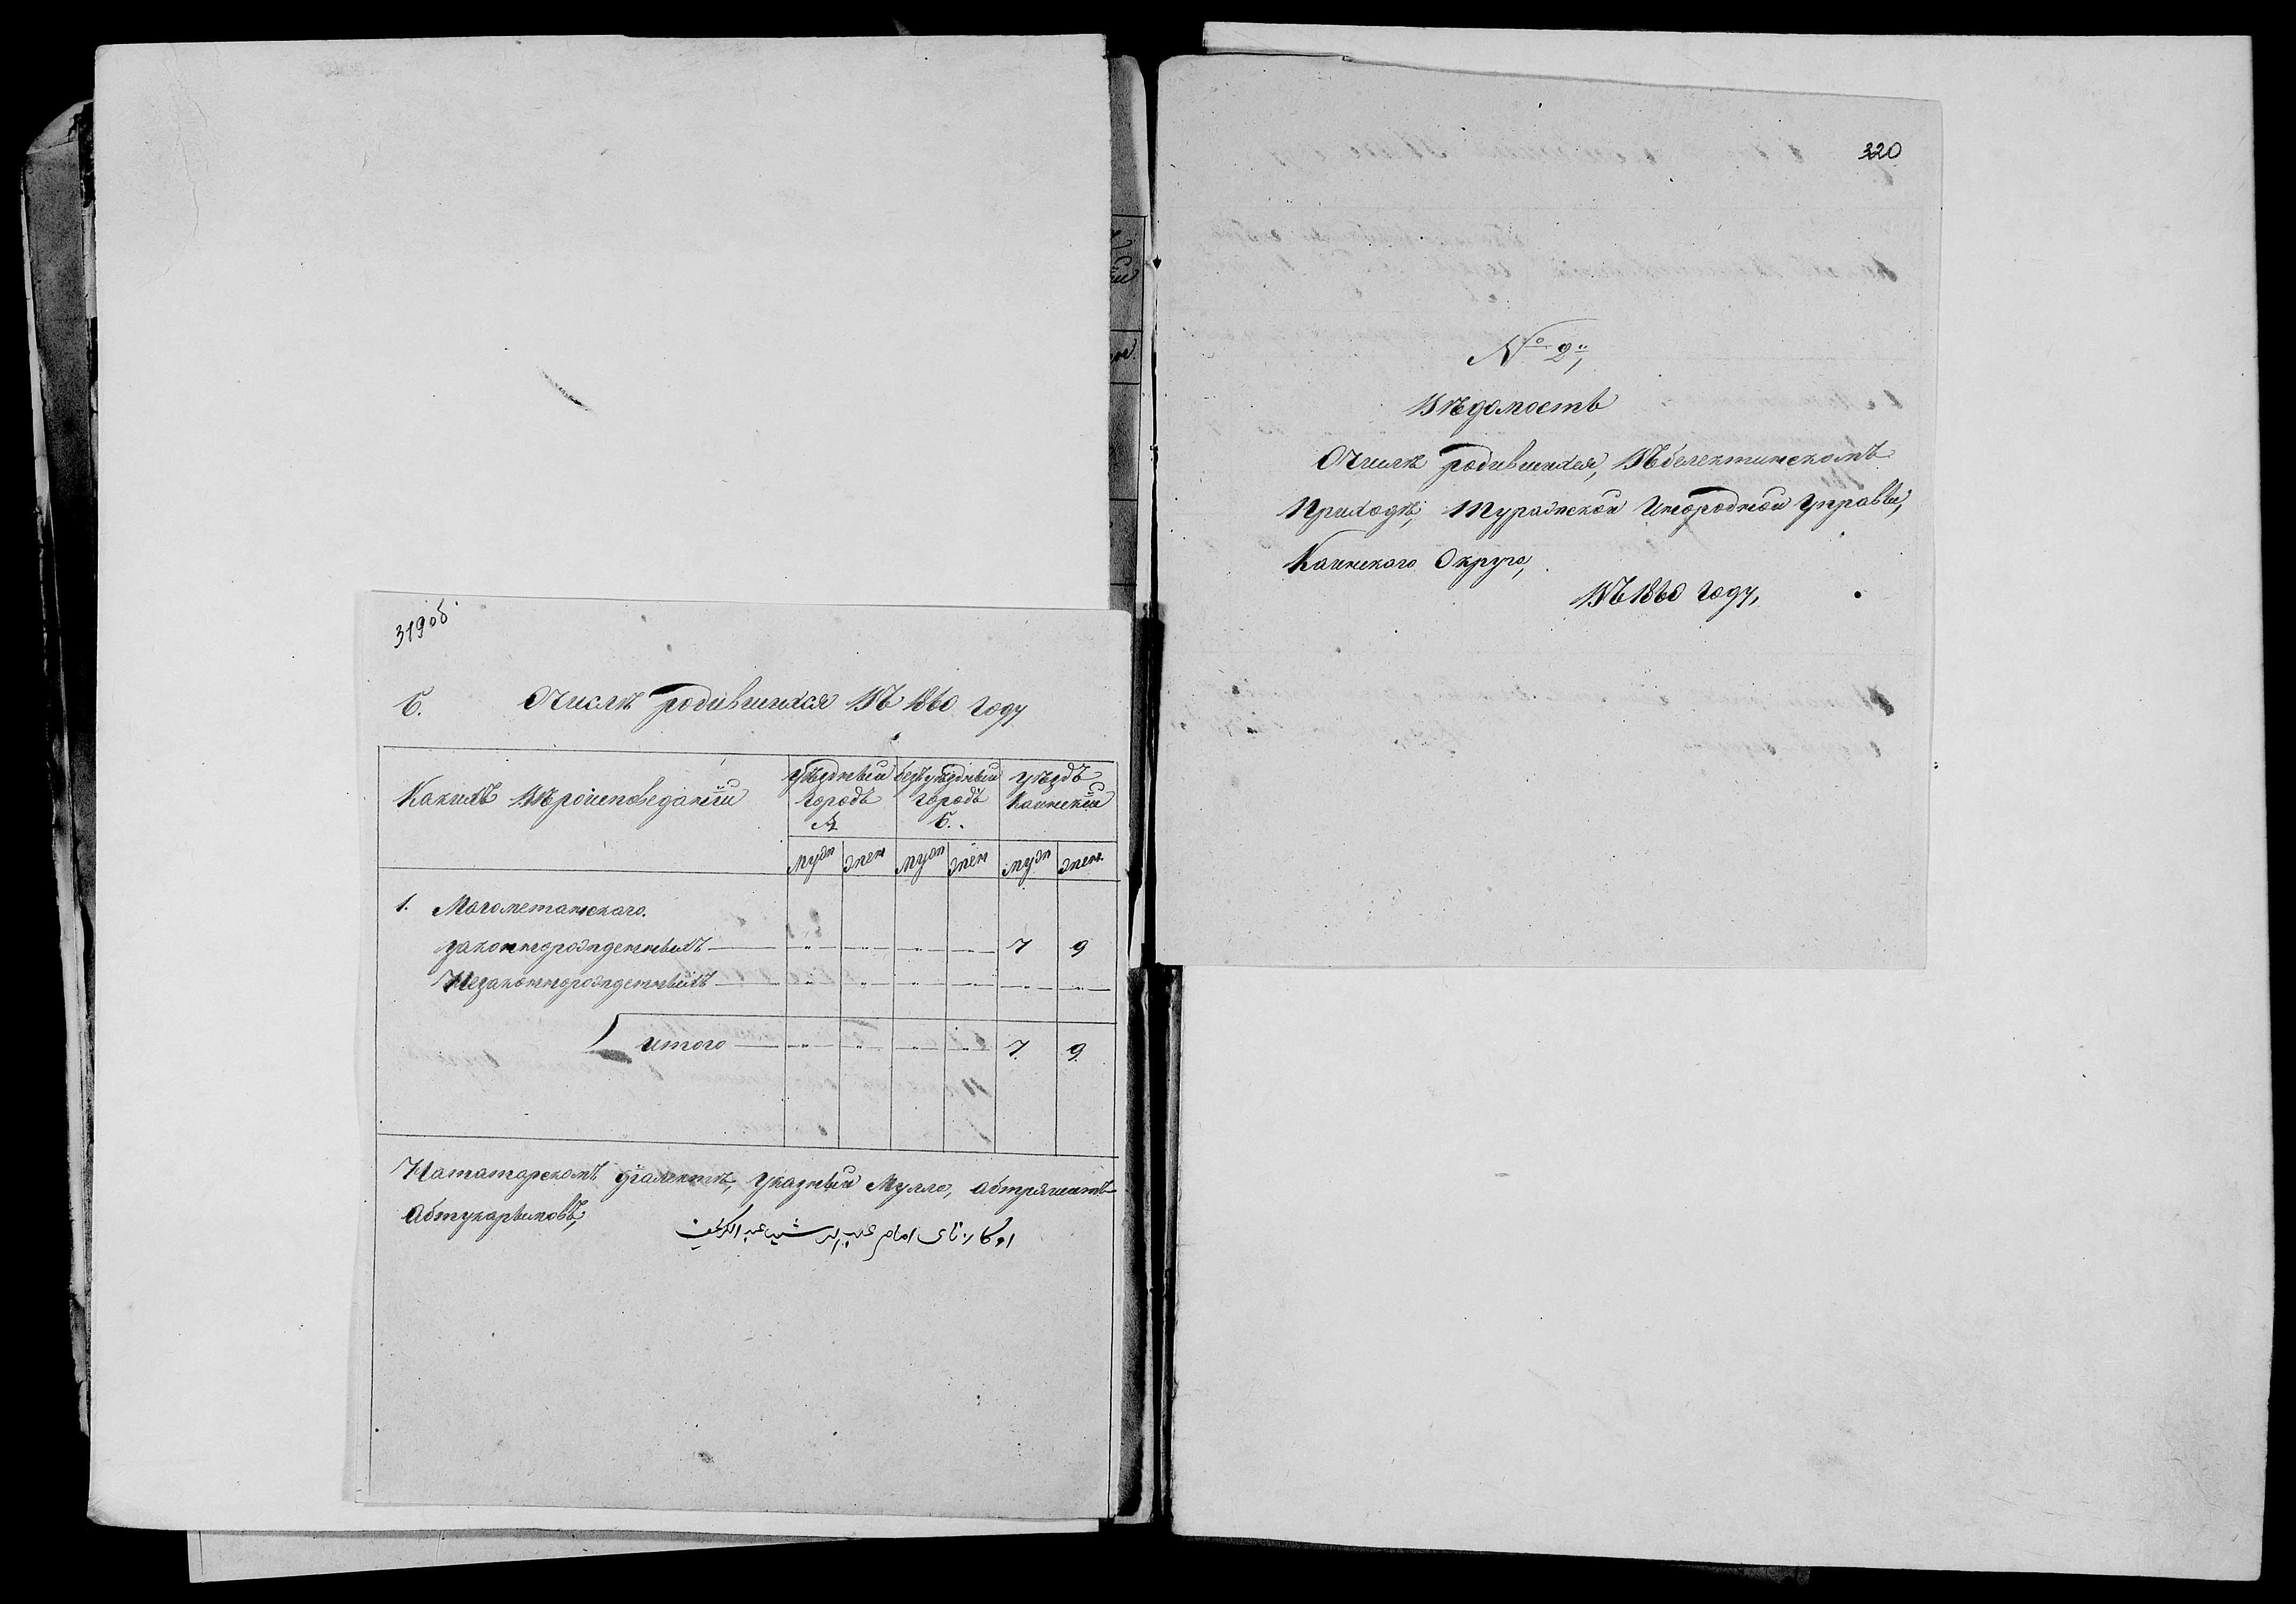 319об
Б. Очислѣ родившихся Въ 1860 году
Какихъ Вѣроисповеданiй
уѣздный городъ А
безъуѣздный городъ Б.
уѣздъ Каинскiй
муж жен муж жен муж жен.
1. Магометанского.
законнорожденныхъ — „ — „ — „ — „ — 7 9
Незаконнорожденныхъ — „ — „ — „ — „ — „ — „
итого — „ — „ — „ — „ 7. 9.
Ήататарскомъ дiалектѣ, указный Мулла,
320
№ 2й,
Вѣдомость
Очислѣ родившихся,
Приходѣ, Туражской Инородной Управы,
Каинского Округа,
Въ 1860 году,